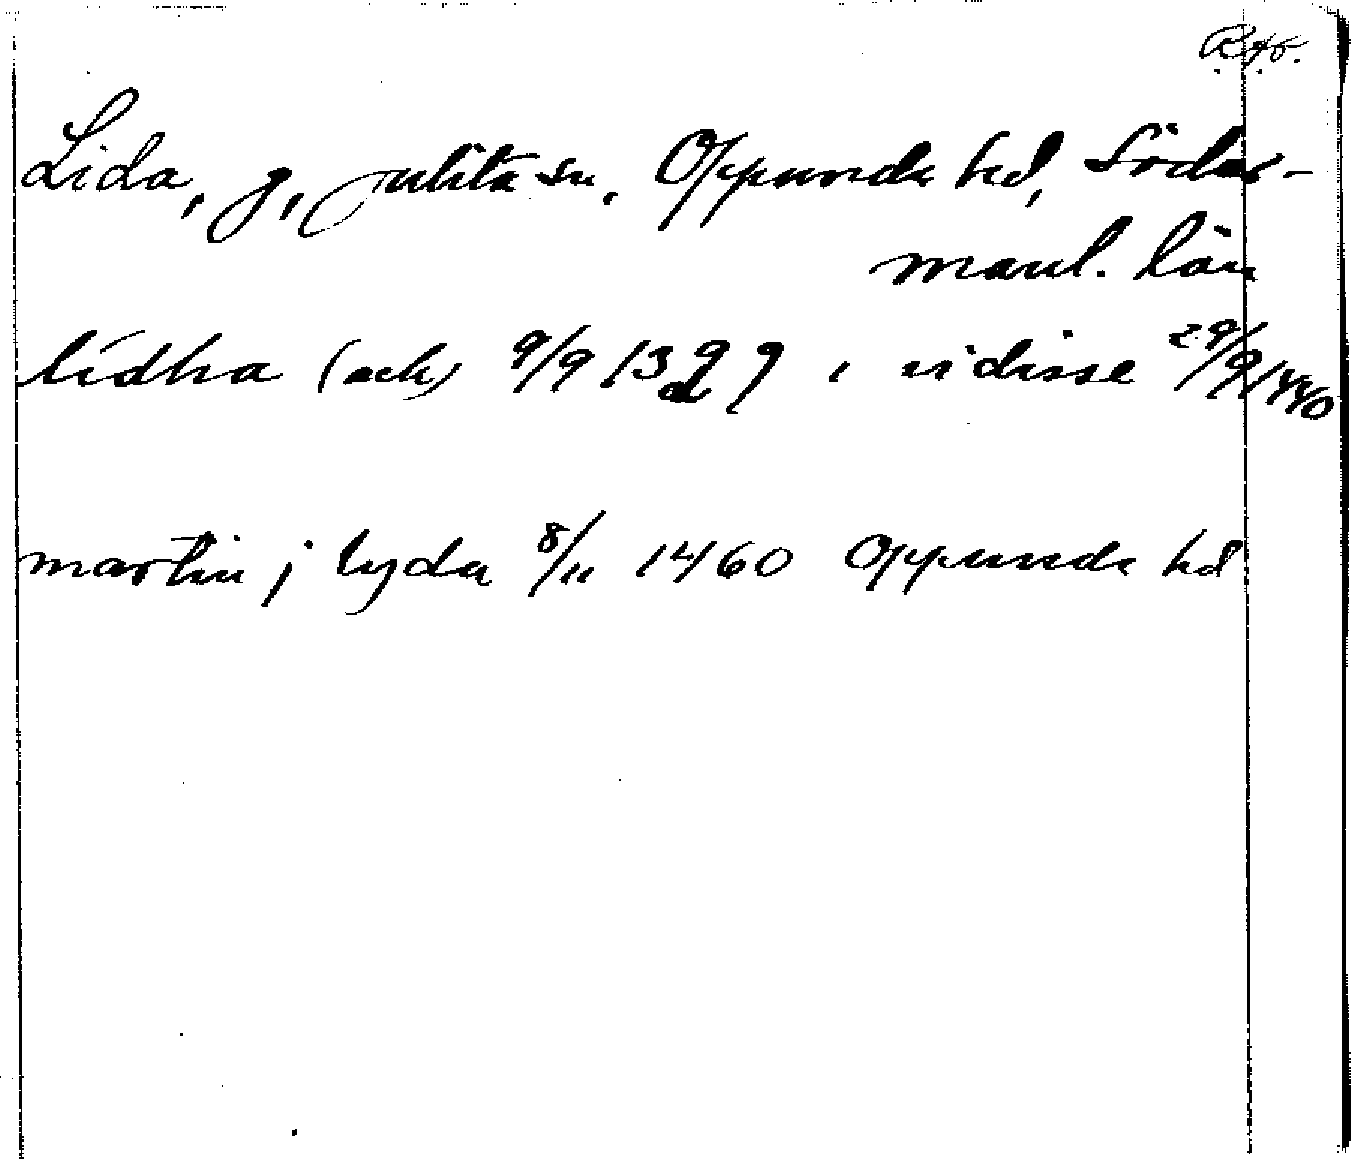 RAp.
Lida, g, Julita sn, Oppunda hd, Söder-
manl. län
lidha (ack) 9/9 1399 i vidisse 29/9 1440
martin j lyda 8/11 1460 Oppunda hd